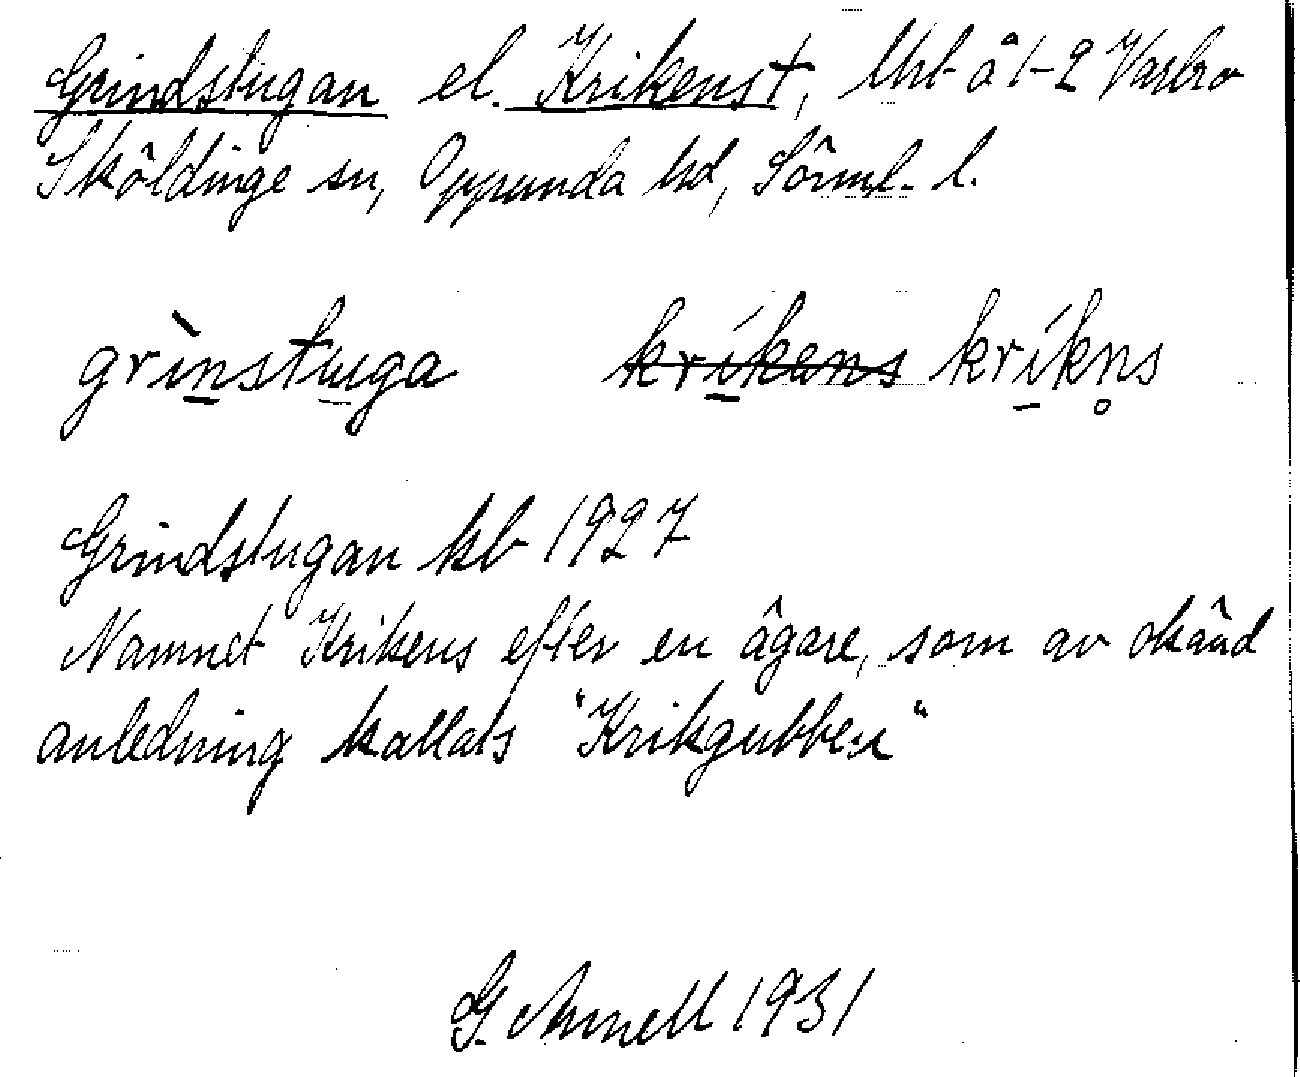 Grindstugan el. Krikens†, lht å 1-2 Vasbro
Sköldinge sn, Oppunda hd, Sörml. l.
grìnstuga krikens kríkn̥s
Grindstugan kb 1927
Namnet Krikens efter en ägare, som av okänd
anledning kallats "Krikgubben"
G. Arnell 1931